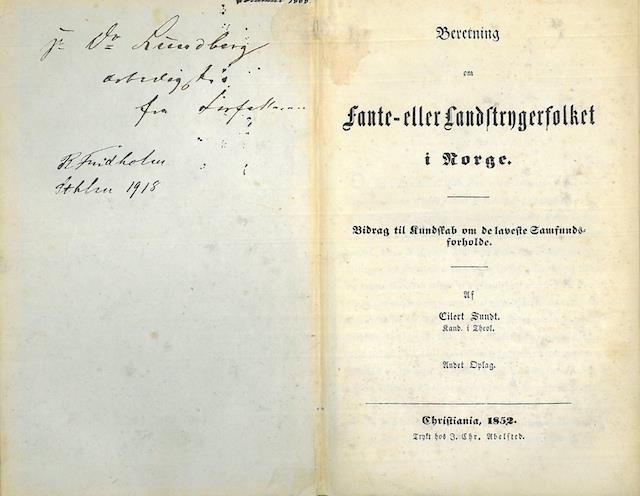 Dr Lundberg
fra Forfatteren
R Fridholm
Sthlm 1918
Beretning
om
Fante- eller Landstrygerfolket
i Norge.
Bidrag til Kundskab om de laveste Samfunds-
forholde.
Af
Eilert Sundt.
Kand. i Theol.
Andet Oplag.
Christiania, 1852.
Trykt hos J. Chr. Abelsted.